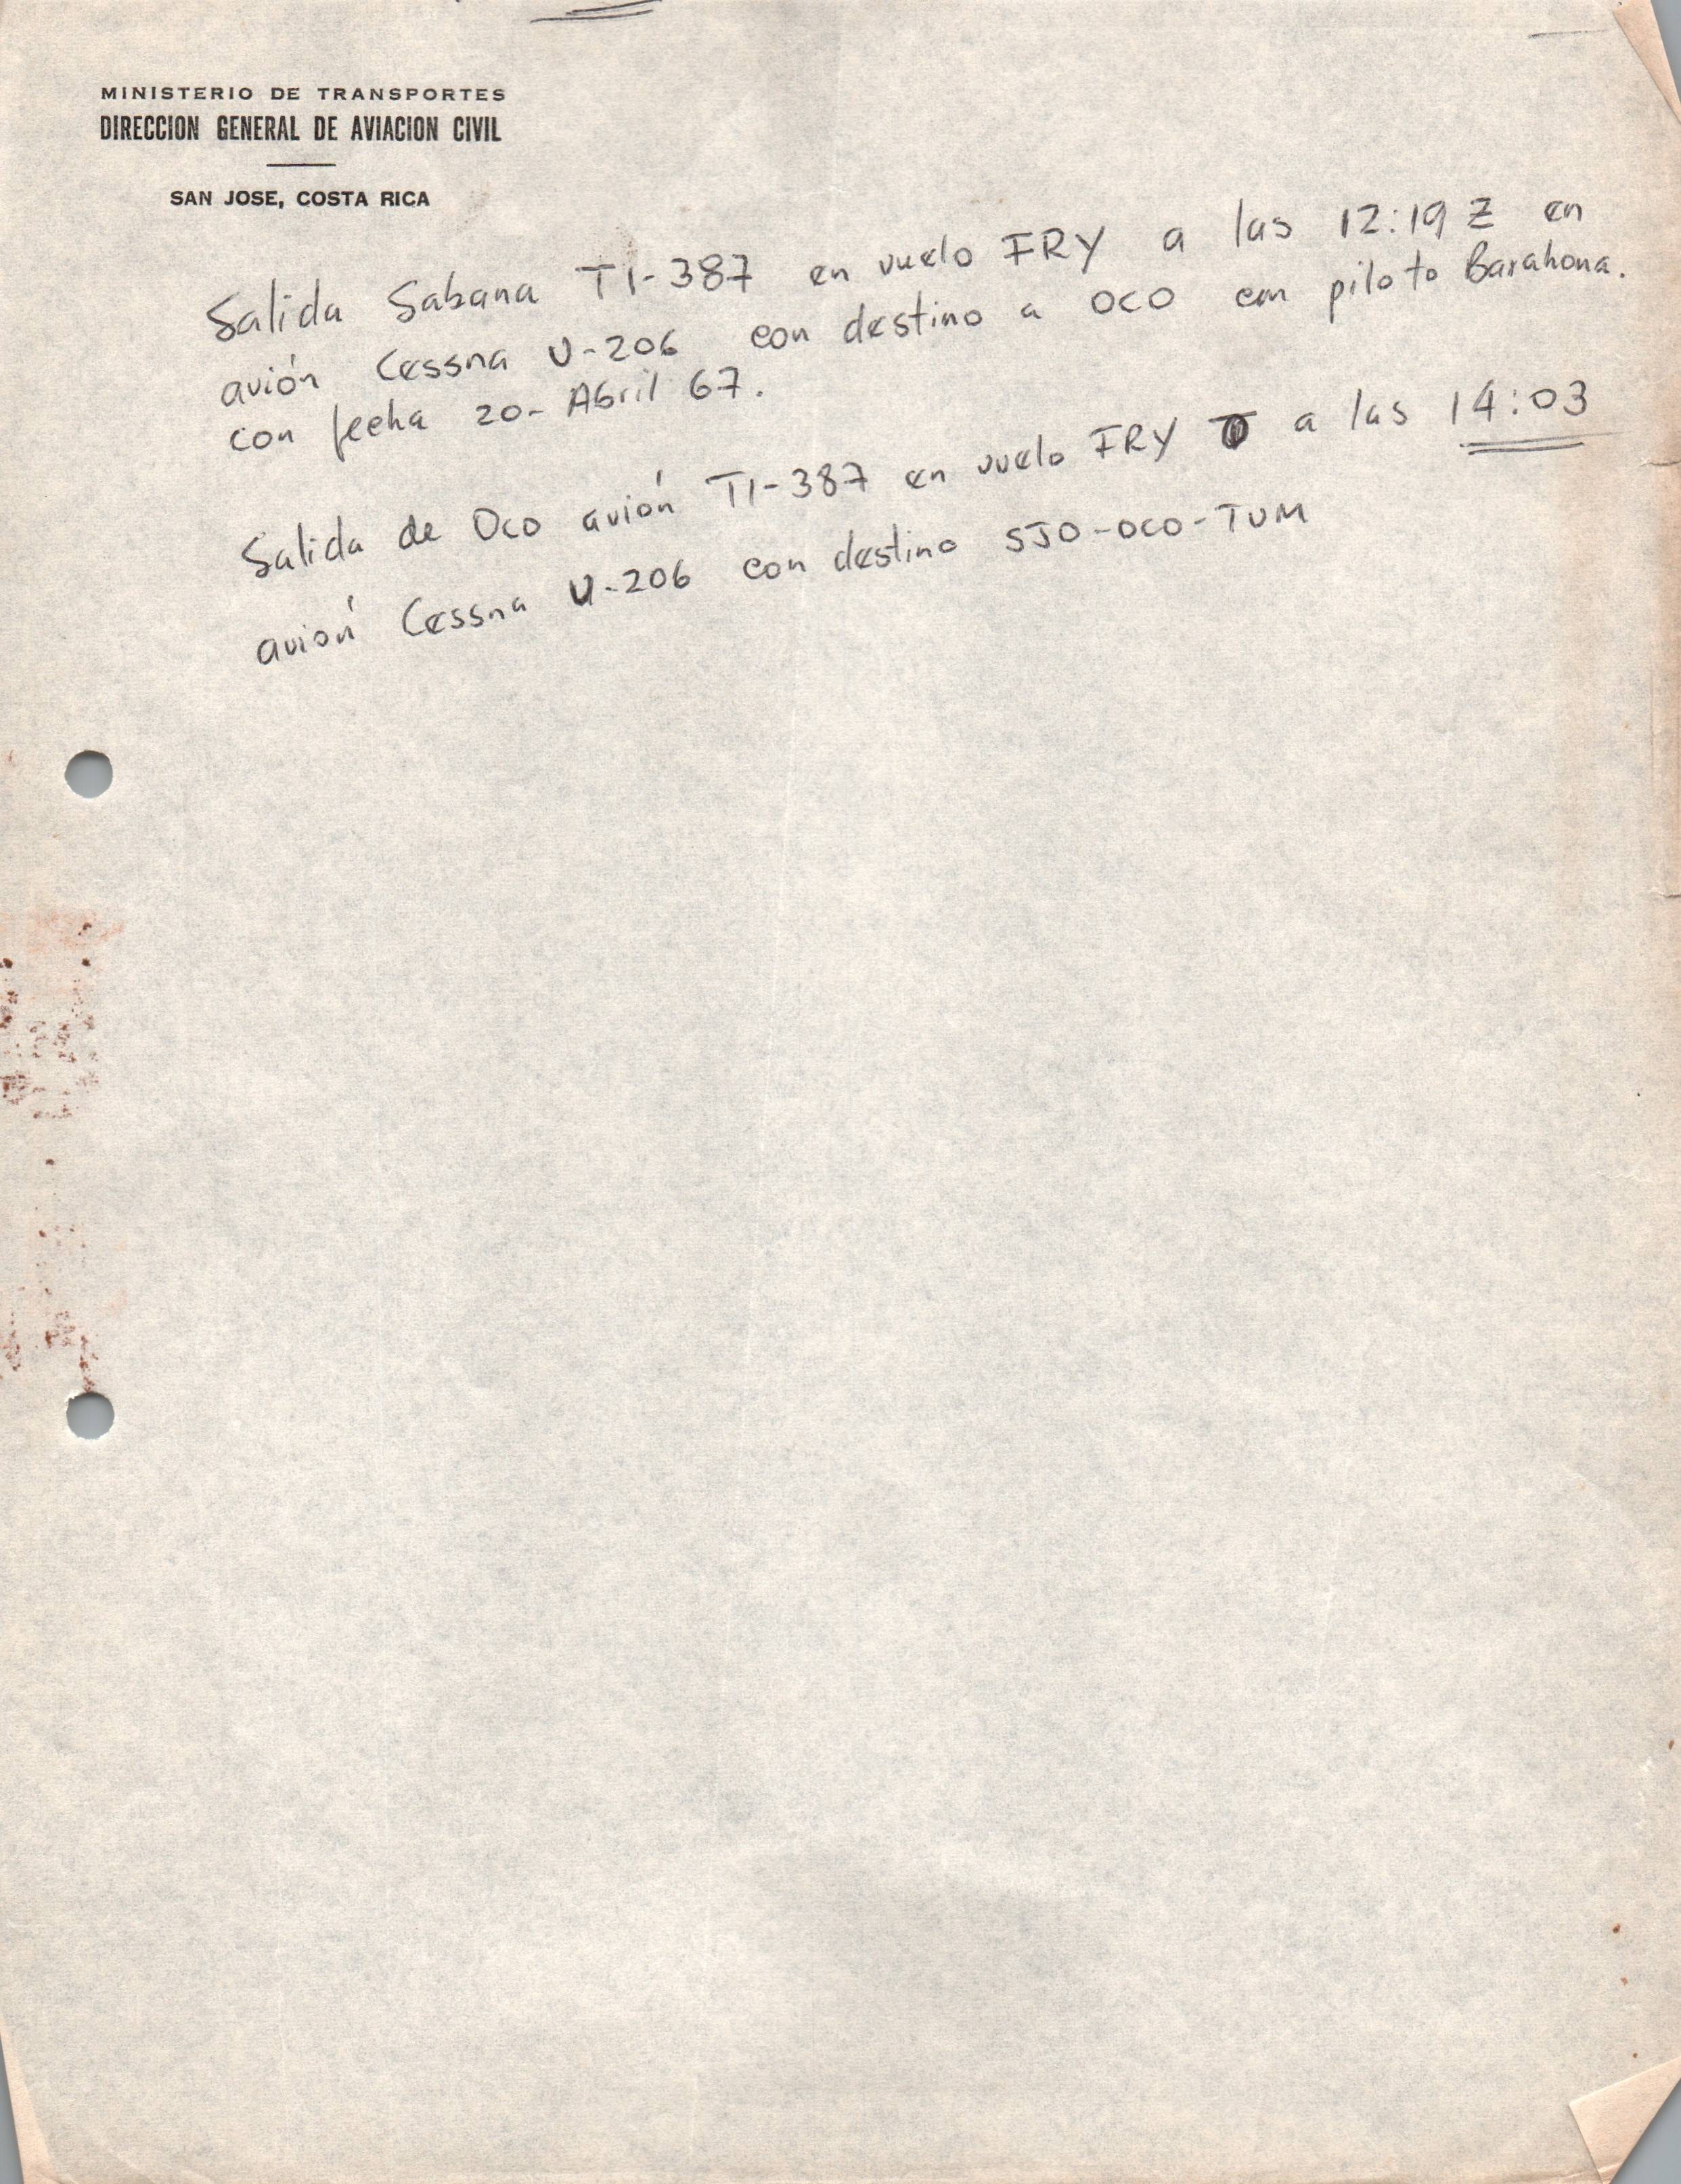 MINISTERIO DE TRANSPORTES
DIRECCION GENERAL DE AVIACION CIVIL
SAN JOSE, COSTA RICA
Salida Sabana TI-387 en vuelo FRY a las 12:19 Z en
avión Cessna U-206 con destino a OCO con piloto Barahona.
con fecha 20- Abril 67.
Salida de Oco avión TI-387 en vuelo FRY a las 14:03
avión Cessna U-206 con destino SJO-OCO-TUM